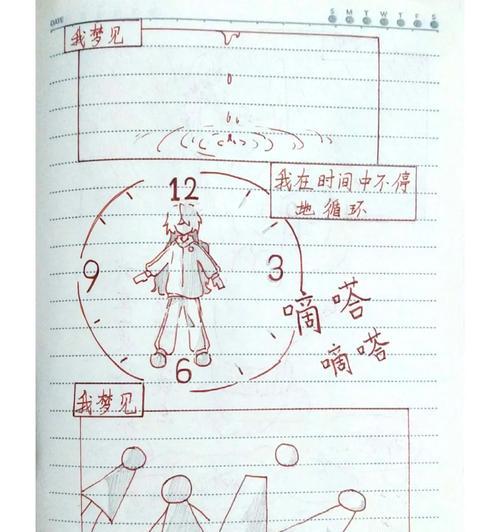 DATE
S M T W T F S
我梦见
我在时间中不停
地循环
12
9
3
6
嘀嗒
嘀嗒
我梦见